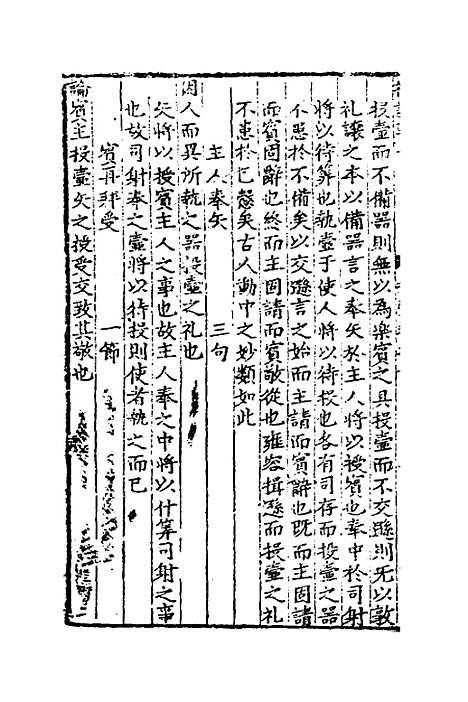 投壺而不備器則無以為樂賓之具投壺而不交遜則无以敦
礼讓之本以備器言之奉矢於主人將以授賓也奉中於司射
將以待筭也執壺于使人將以待投也各有司存而投壺之器
不患於不備矣以交遜言之始而主請而賓辭也既而主固請
而賓固辭也終而主固請而賓敬從也雍容揖遜而投壺之礼
不患於已愨矣古人動中之妙類如此
主人奉矢 三句
因人而異所執之器投壺之礼也
矢將以授賓主人之事也故主人奉之中將以什筭司射之事
也故司射奉之壺將以待投則使者執之而已
賓再拜受 一節
論賓主投壺矢之授受交致其敬也